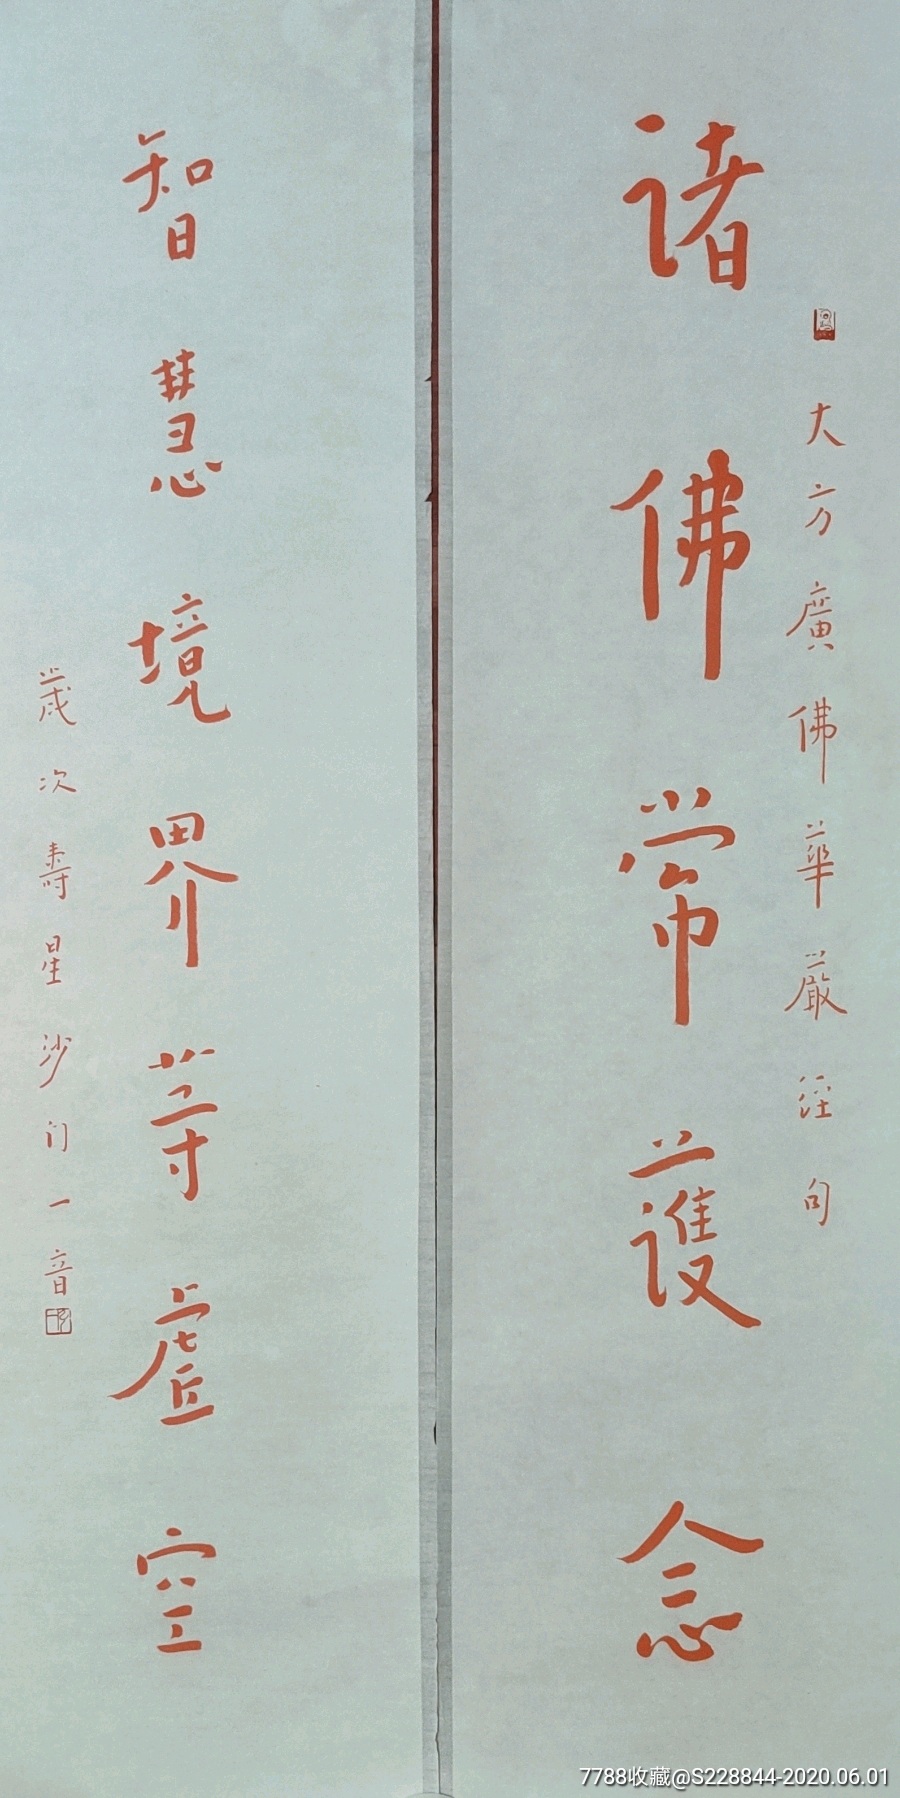 大方廣佛華嚴經句
諸佛常護念
智慧境界等虛空
歲次壽星沙门一音
7788收藏@S228844-2020.06.01